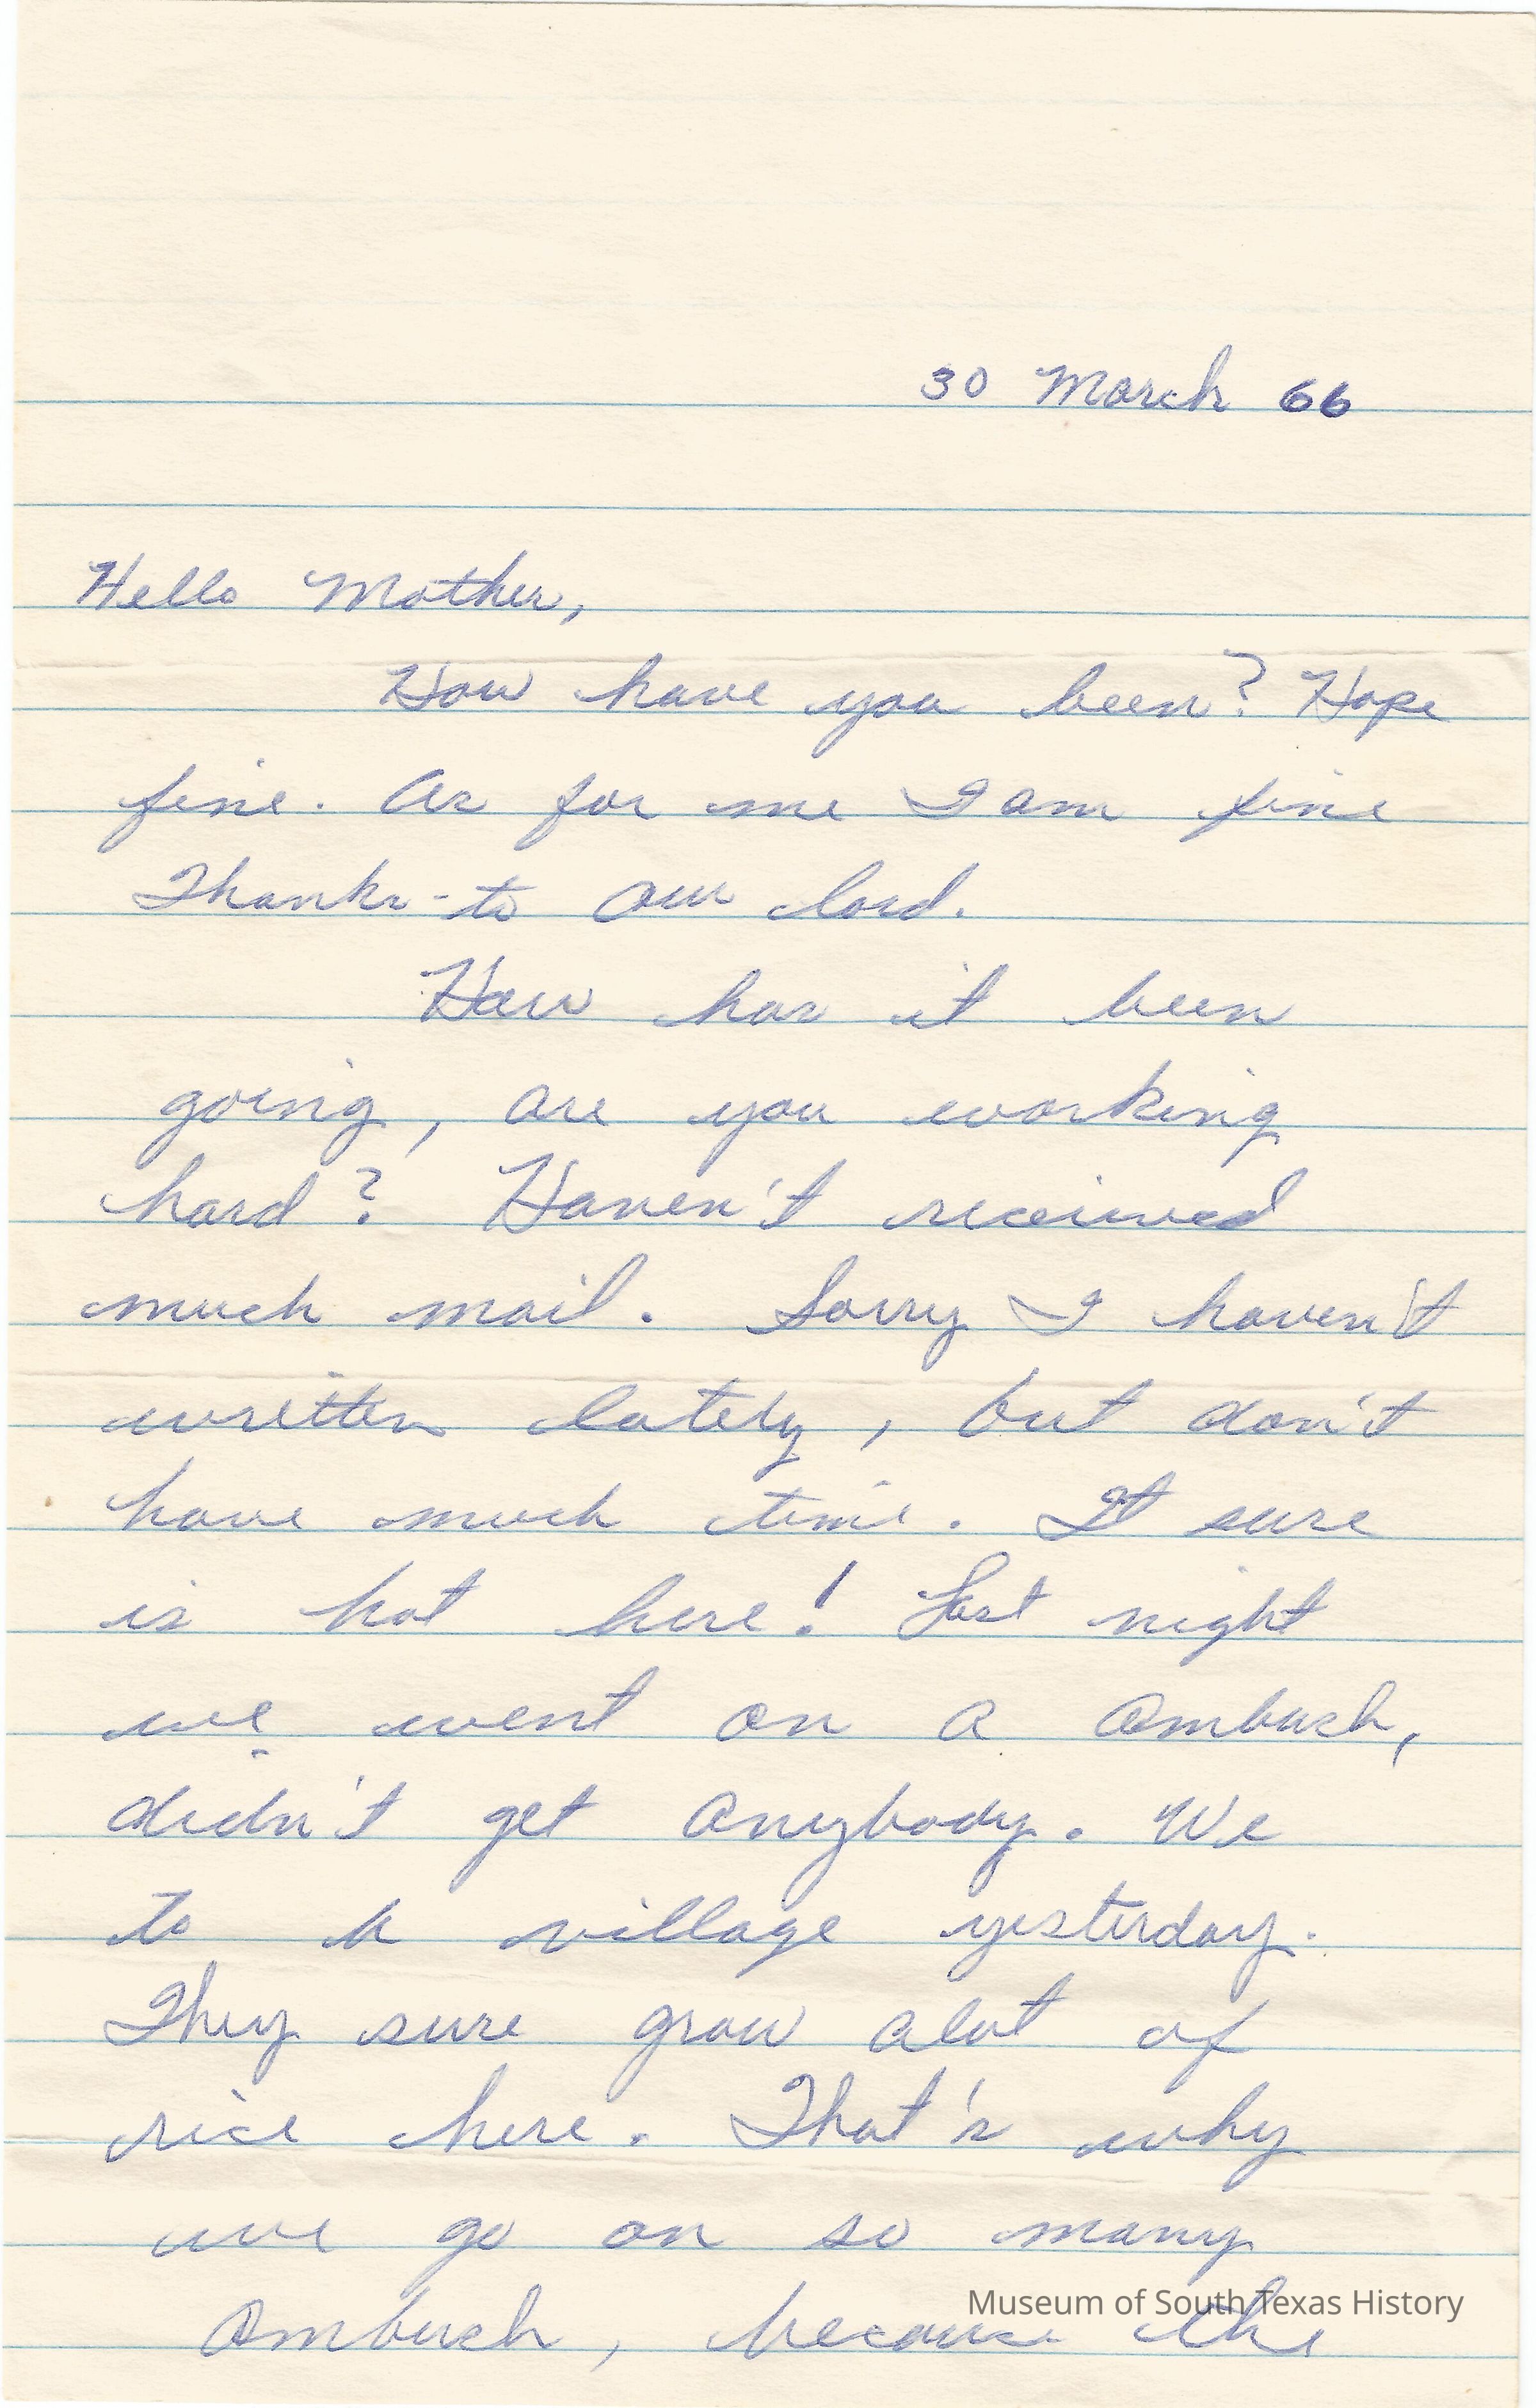 30 March 66
Hello Mother,
How have you been? Hope
fine. As for me I am fine
Thanks-to our lord.
How has it been
going, are you working
hard? Haven't received
much mail. Sorry I haven't
written lately, but don't
have much time. It sure
is hot here! Last night
we went on a ambush,
didn't get anybody. We
to a village yesterday.
They sure grow alot of
rice here. That's why
we go on so many
Museum of South Texas History
ambush, because the